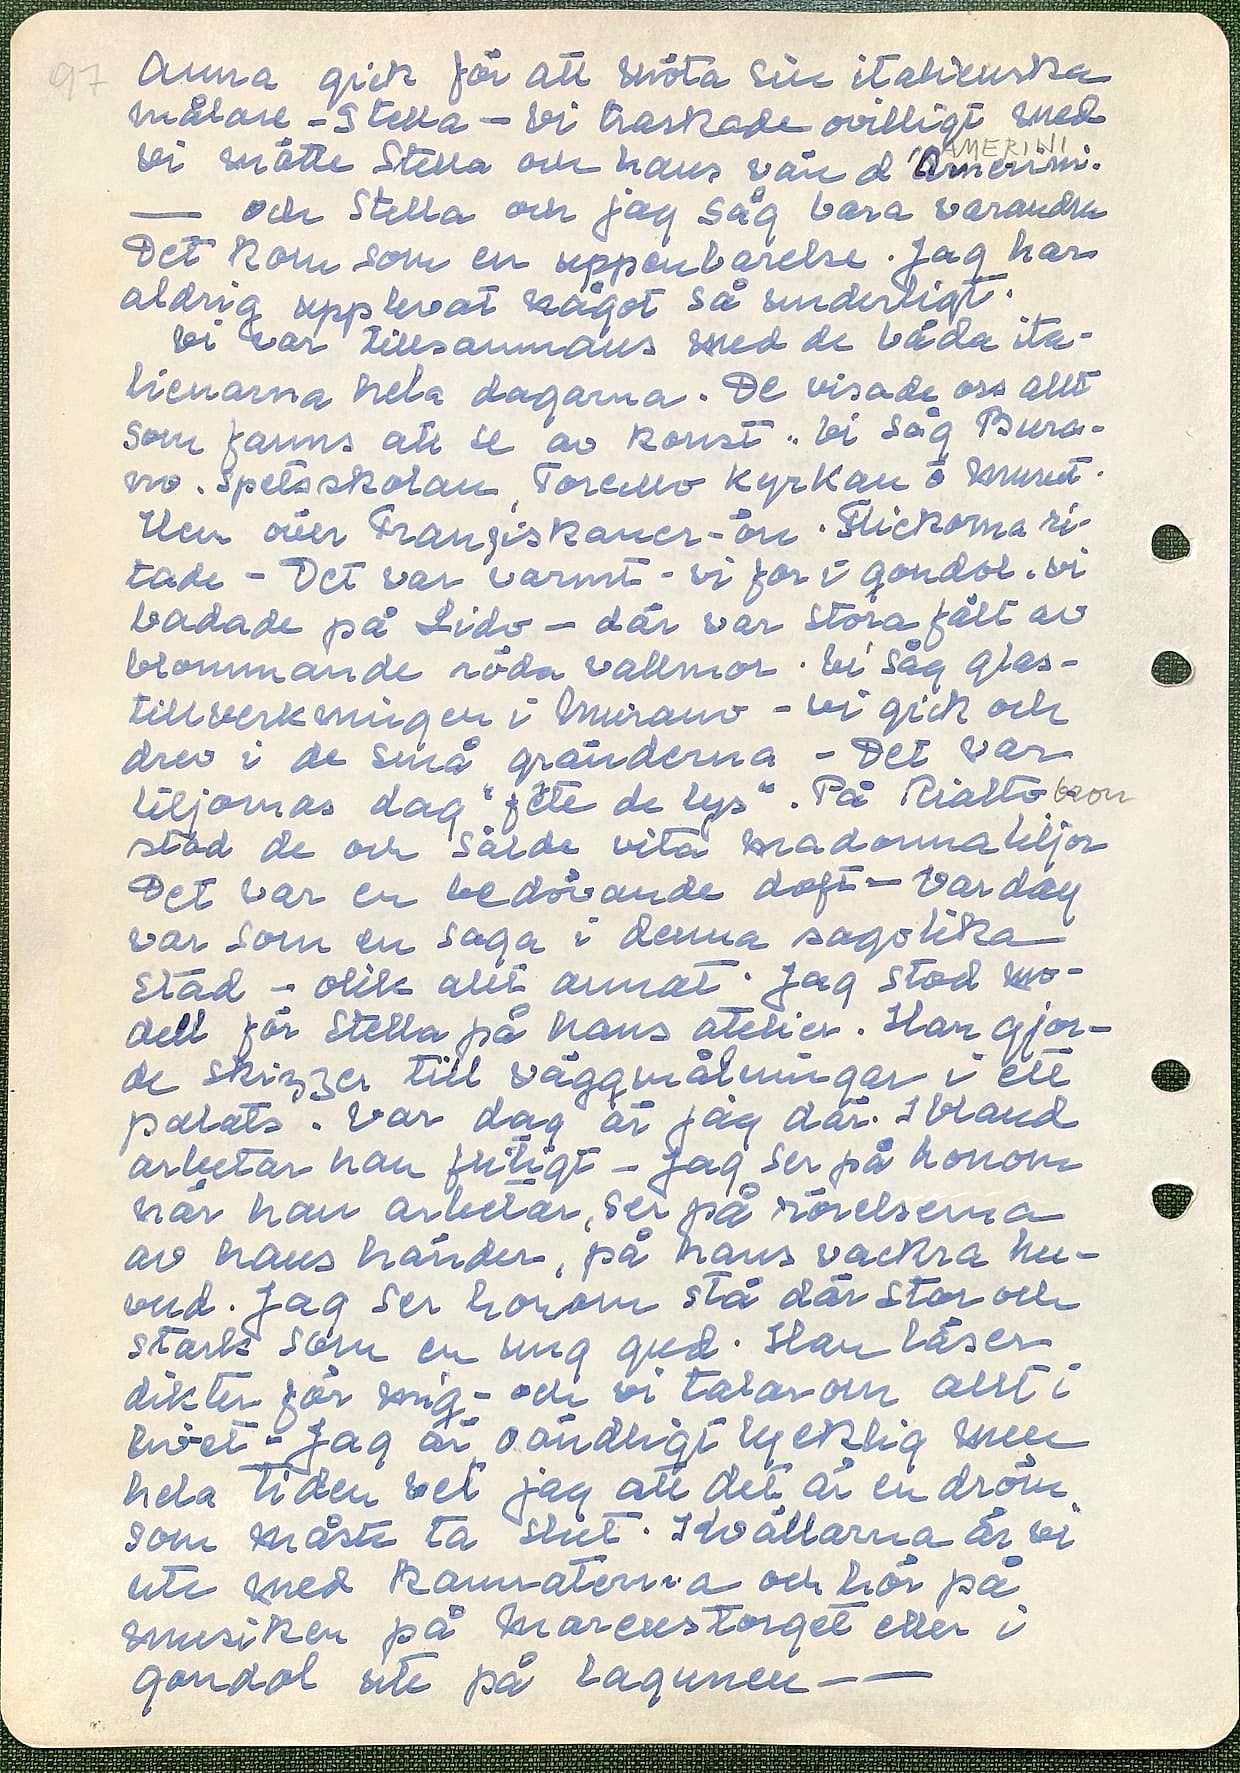 97
Anna gick för att möta sin italienska
målare - Stella - Vi traskade ovilligt med
Vi mötte Stella och hans vän d'Amerini.
AMERINI
— och Stella och jag såg bara varandra
Det kom som en uppenbarelse. Jag har
aldrig upplevat något så underligt.
Vi var tillsammans med de båda ita-
lienarna hela dagarna. De visade oss allt
som fanns att se av konst. Vi såg Bura-
no. Spetsskolan, Torcello kyrkan o
över Franziskaner-ön. Flickorna ri-
tade - Det var varmt - vi for i gondol. vi
badade på Lido - där var stora fält av
blommande röda vallmor. Vi såg glas-
tillverkningen i Murano - vi gick och
drev i de små gränderna - Det var
liljornas dag "fête de lys". På Rialto bron
stod de och sålde vita madonnaliljor
Det var en bedövande doft - Var dag
var som en saga i denna sagolika
stad - olik allt annat. Jag stod mo-
dell för Stella på hans atelier. Han gjor-
de skizzer till väggmålningar i ett
palats. Var dag är jag där. Ibland
arbetar han flitigt - Jag ser på honom
när han arbetar, ser på rörelserna
av hans händer, på hans vackra hu-
vud. Jag ser honom stå där stor och
stark som en ung gud. Han läser
dikter för mig - och vi talar om allt i
livet - Jag är oändligt lycklig men
hela tiden vet jag att det är en dröm
som måste ta slut. I kvällarna är vi
ute med kamraterna och hör på
musiken på Marcustorget eller i
gondol ute på lagunen — —